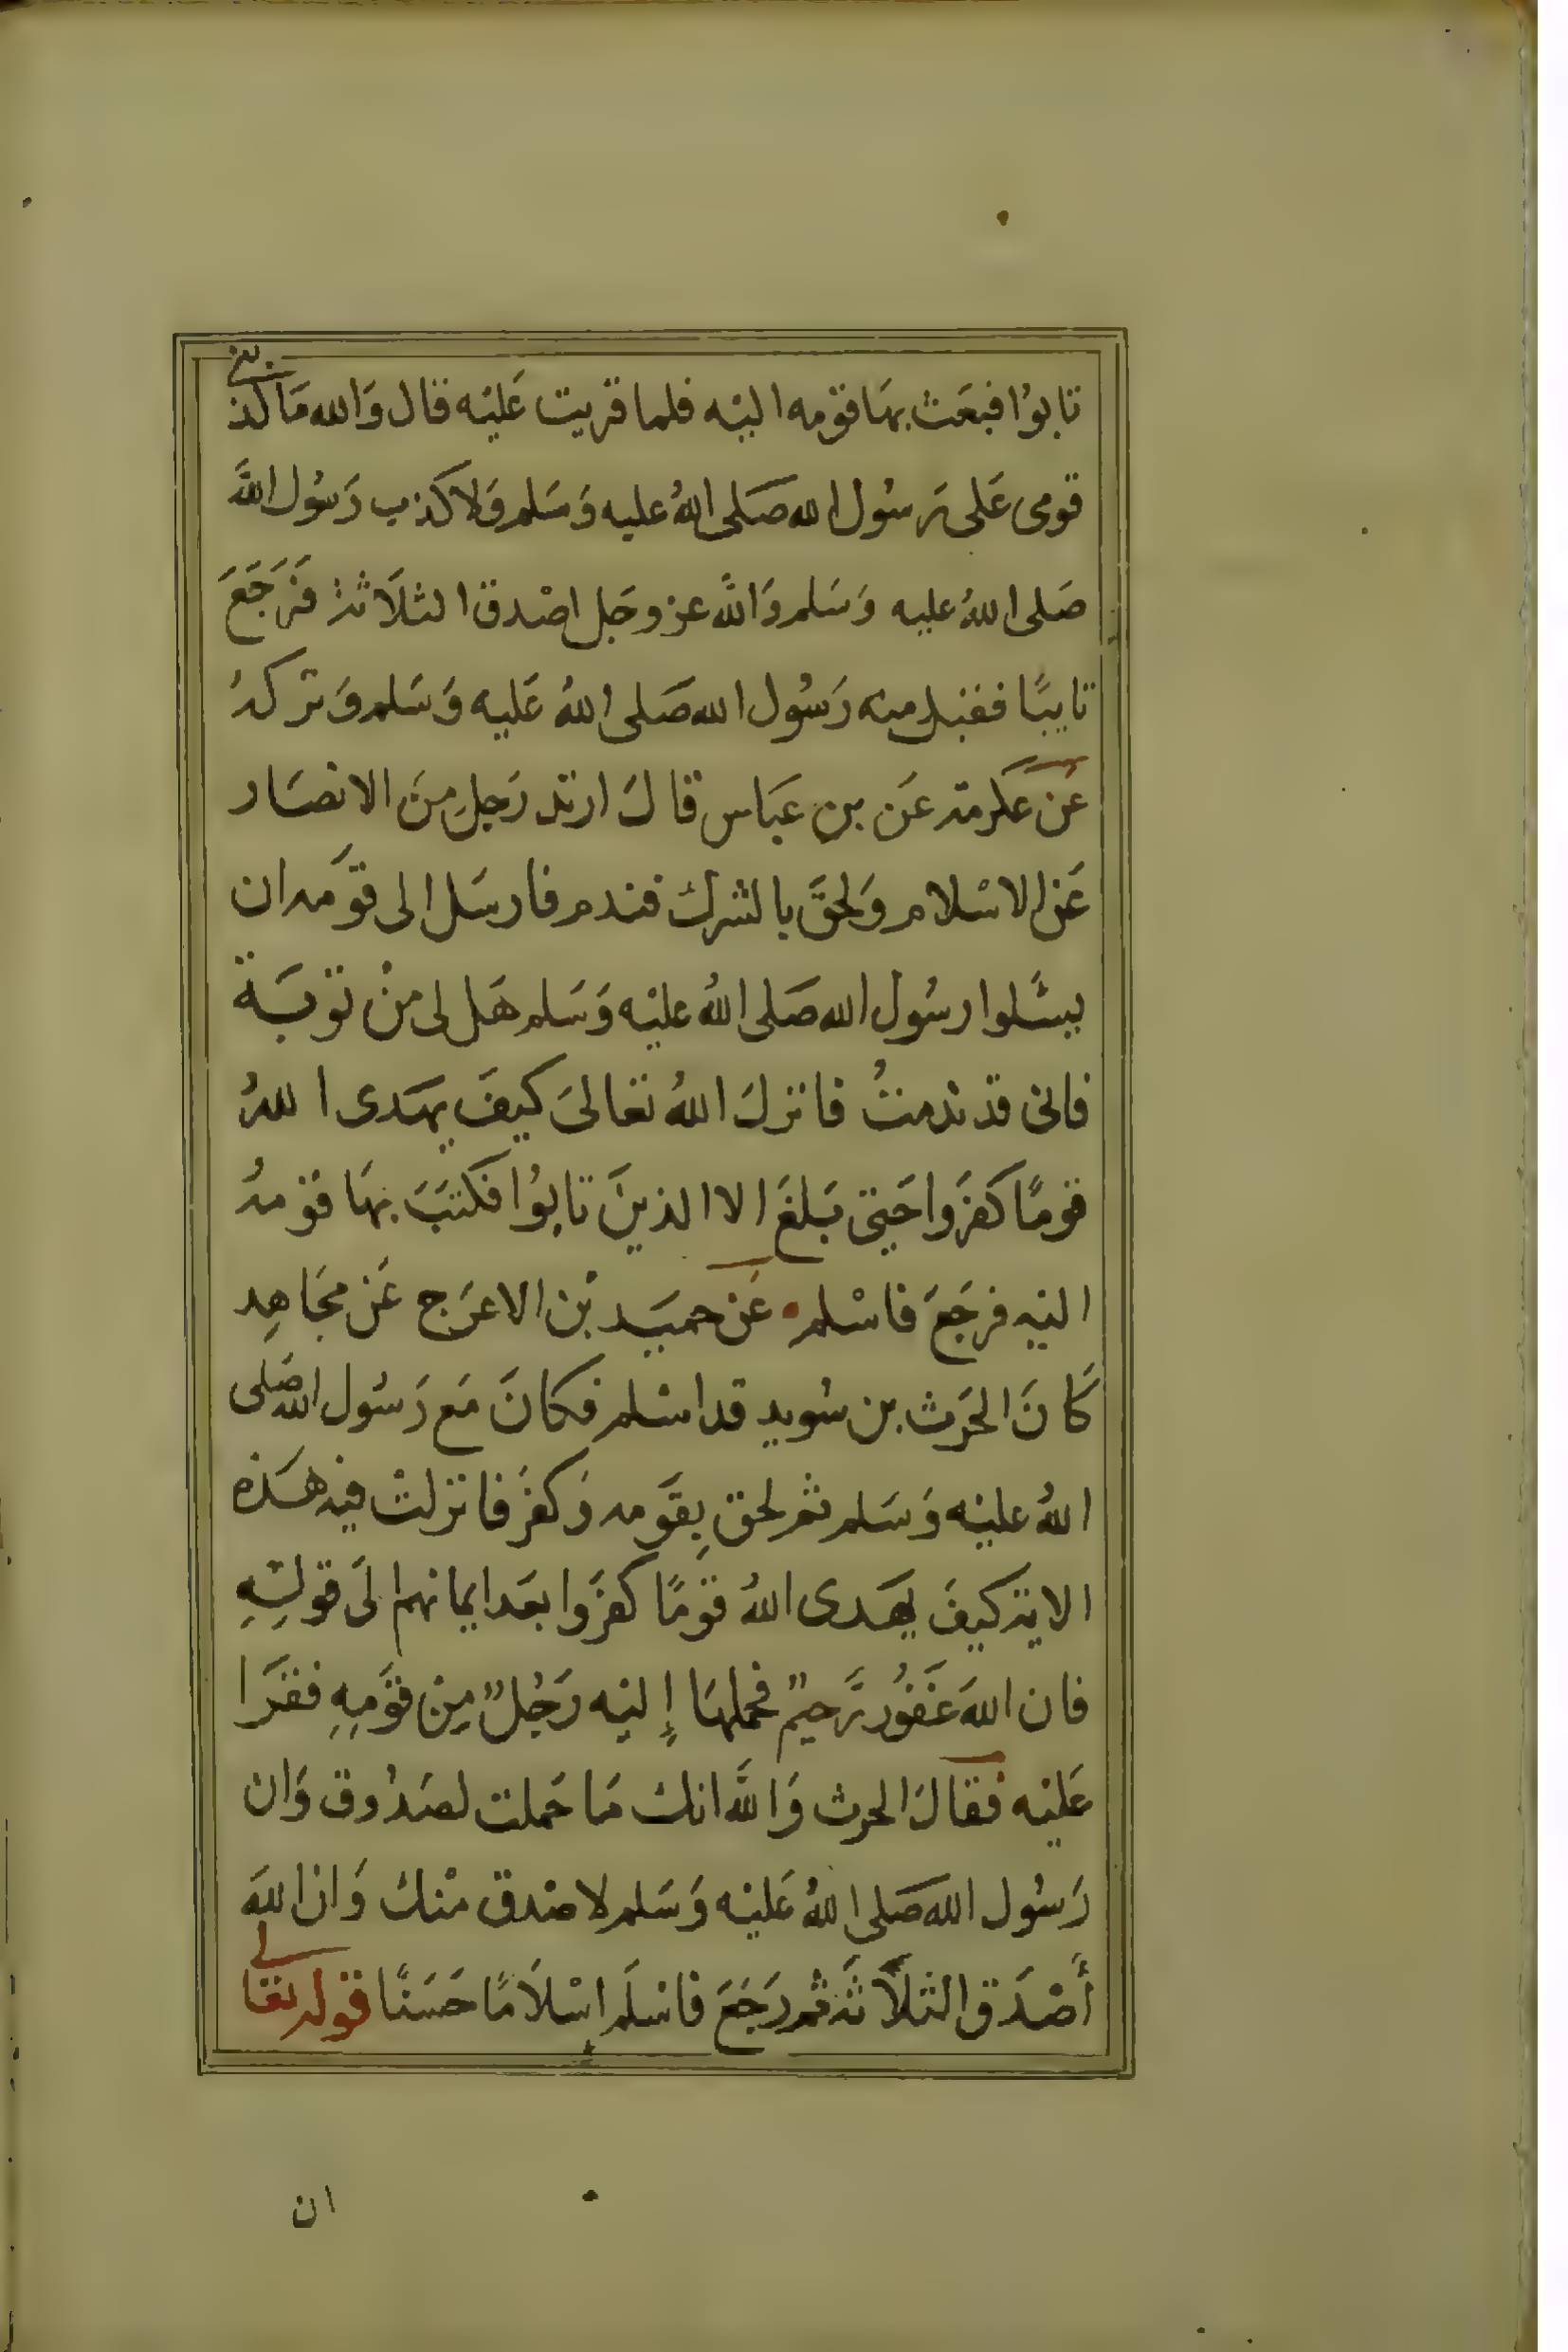 تابوُا فبعَث بهَا قوْمه اليْه فلما قريت عَليْه قال وَالله مَا كذبني
قومى عَلى رَسُول الله صَلى اللهُ عليه وَسَلم وَلا كذب رَسُول اللهَّ
صَلى اللهُ عليه وَسَلم وَاللهَّ عز وجَل اصْدق الثلَاثة فَرَجَعَ
تايبًا فقبل منه رَسُول الله صَلى اللهُ عَليه وَسَلم وَتركهُ
عَن عكرمة عَن بن عبَاس قالَ ارتد رَجل منَ الانصَار
عَن الاسْلام وَلحقَ بالشرك فندم فارسَل الى قوَمه ان
يسَّلوا رسُول الله صَلى اللهُ عليْه وَسَلم هَل لى منْ توبَة
فانى قد ندمتُ فانزلَ اللهُ تعَالىَ كيفَ يهَدى اللهُ
قومًا كفرَوا حَتى بَلغَ الا الذينَ تابوُا فكتبَ بهَا قومهُ
اليْه فرجَعَ فاسْلم عَن حميَد بْن الاعرَج عَن مجَاهِد
كَانَ الحَرث بن سُويد قد اسْلم فكانَ مَع رَسُول الله صَلى
اللهُ عليْه وَسَلم ثم لحق بِقوَمه وَكفرَ فانزلتْ فيْه هَذه
الاية كيفَ يهَدى اللهُ قوْمًا كفرَوا بعَد ايمانهم الَى قولِهِ
فان اللهَ غَفوُر رَّحيم فحملهَا إِليْه رَجُل مِنْ قوَّمِهِ فقرَا
عَليْه فقالَ الحرث وَاللهَّ انك مَا حَملت لصَدُوق وَان
رَسُول الله صَلى اللهُ عَليْه وَسَلم لاصْدق منْك وَان اللهَ
أَصْدَق الثلَاثَة ثم رَجَعَ فاسْلَم اسْلَامًا حَسَنًا قوله تعَالى
ان